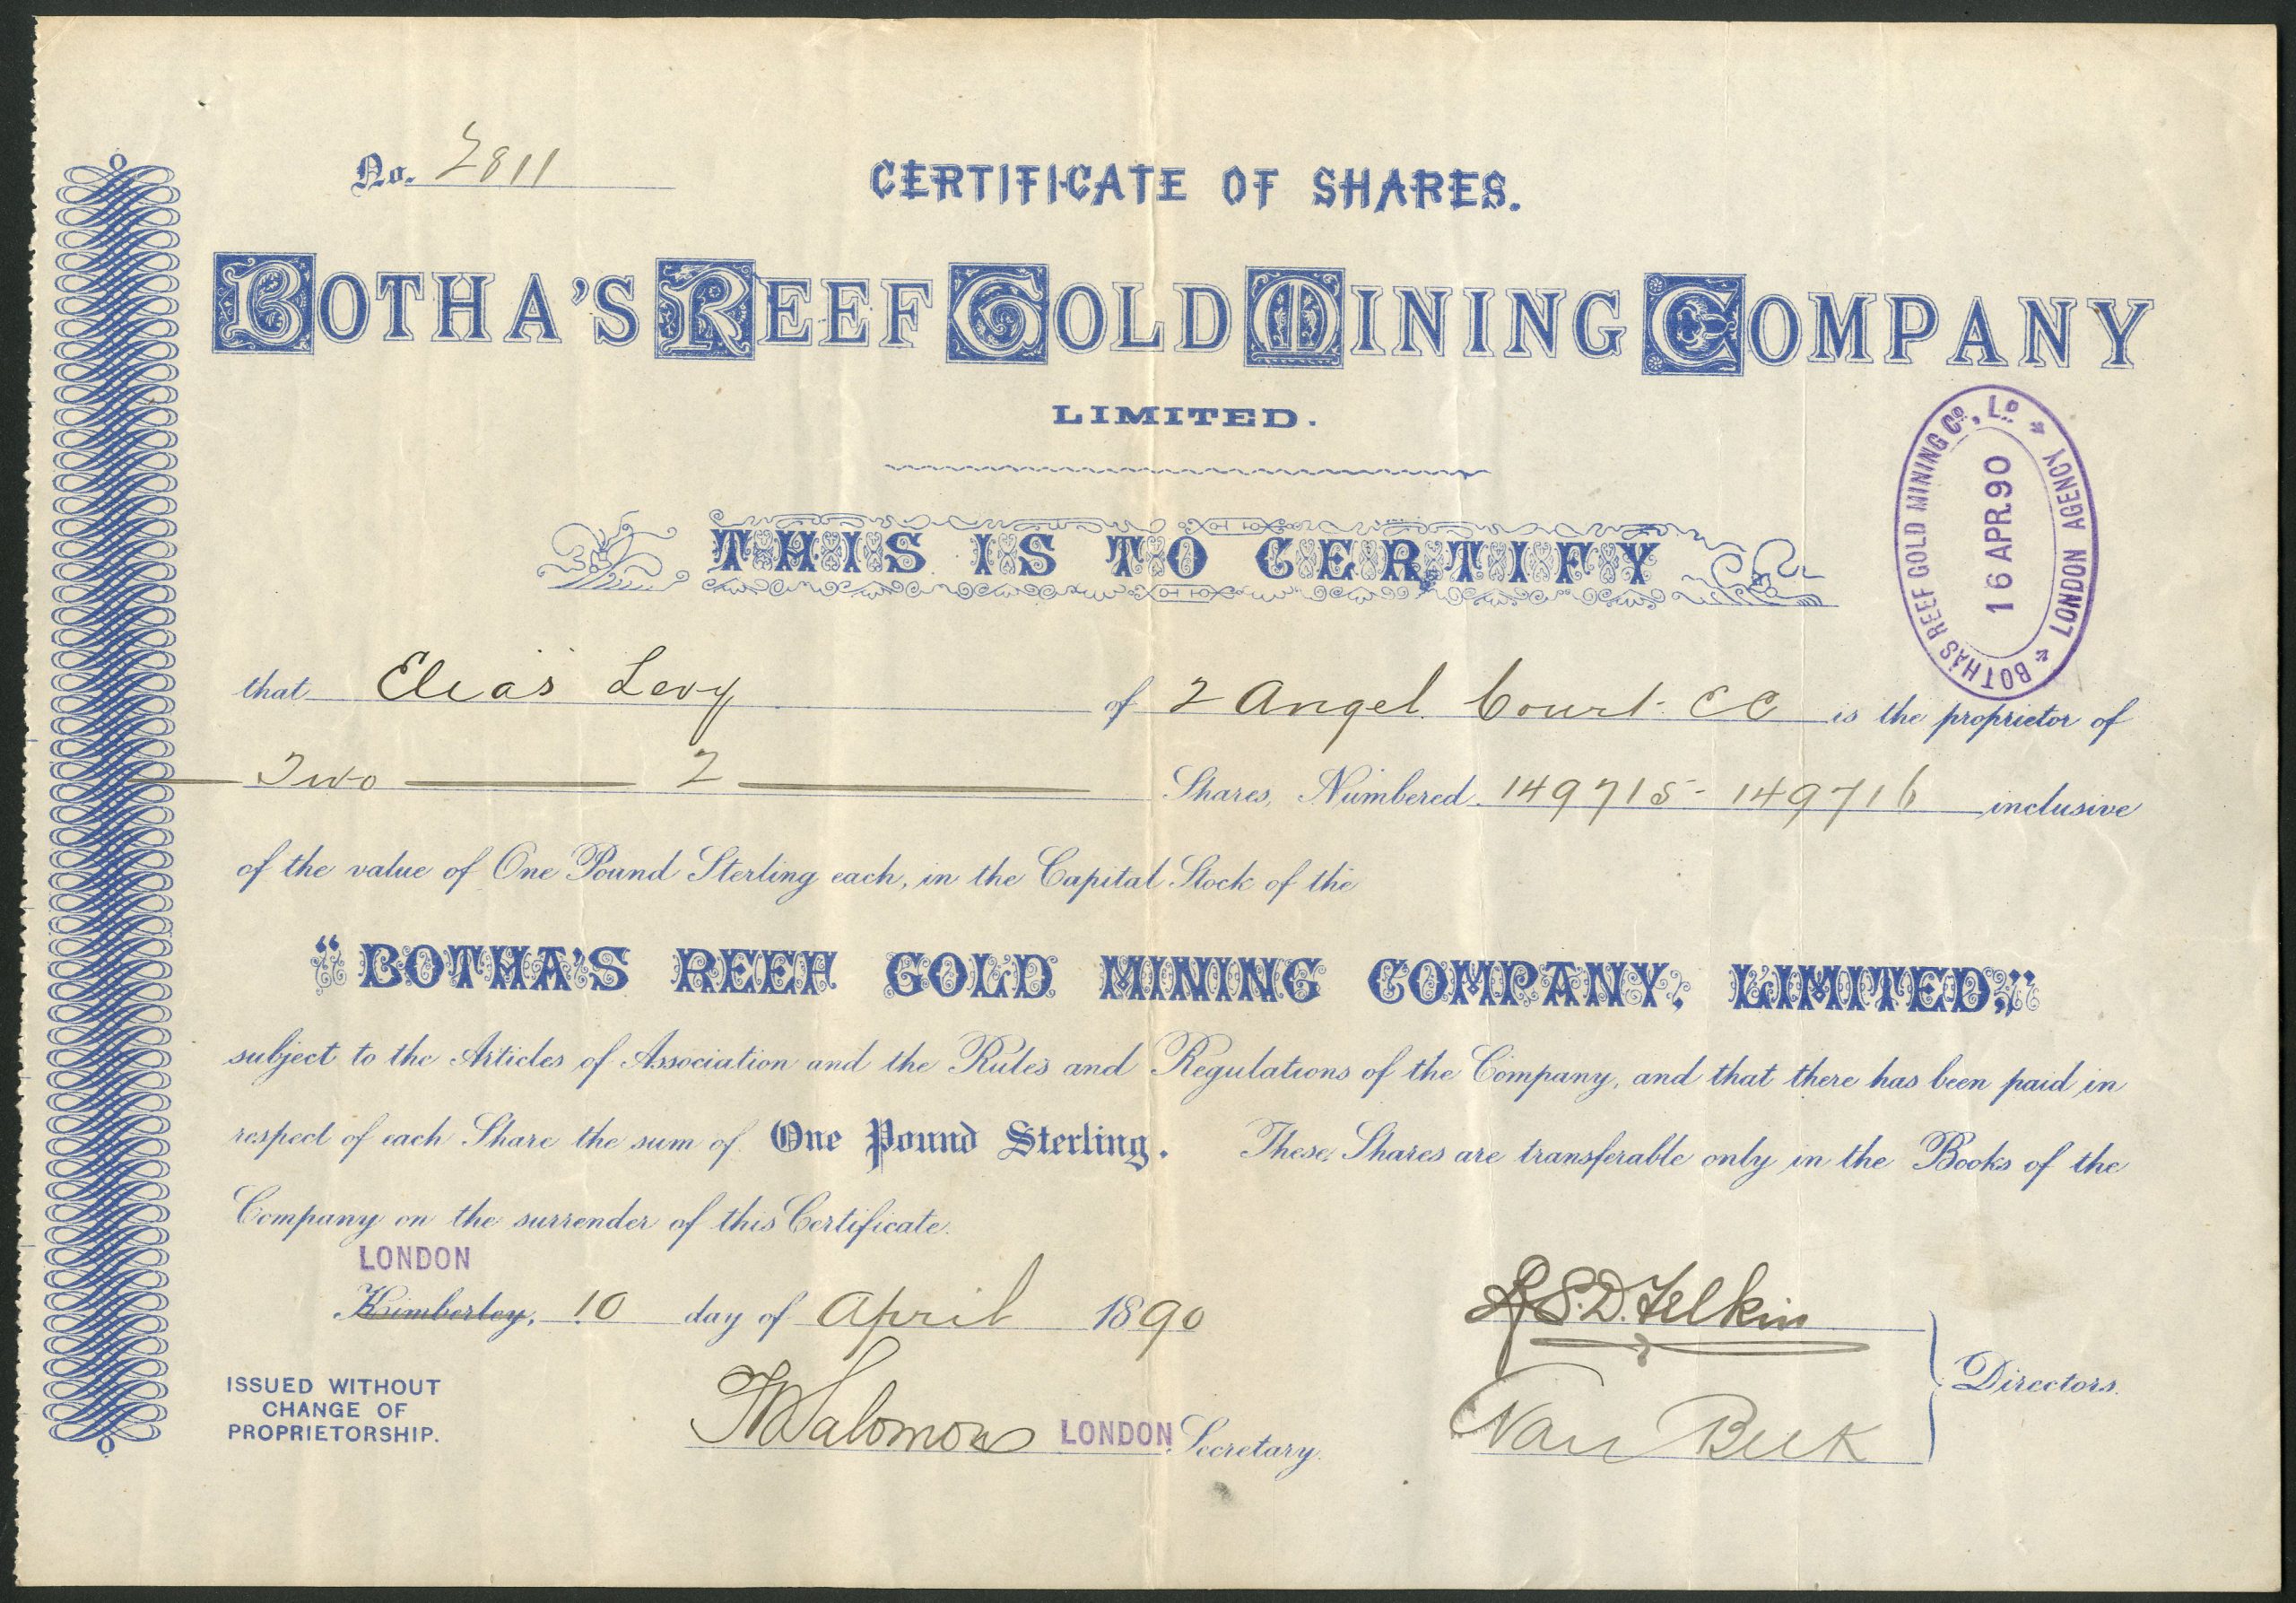 No. 2811
CERTIFICATE OF SHARES.
BOTHA'S REEF GOLD MINING COMPANY
LIMITED.
BOTHAS REEF GOLD MINING Co., LD.
16 APR. 90
LONDON AGENCY
THIS IS TO CERTIFY
that Elias Levy of 2 Angel Court EC is the proprietor of
Two 2 Shares, Numbered 149715 - 149716 inclusive
of the value of One Pound Sterling each, in the Capital Stock of the
"BOTHA'S REEF GOLD MINING COMPANY, LIMITED,"
subject to the Articles of Association and the Rules and Regulations of the Company, and that there has been paid in
respect of each Share the sum of One Pound Sterling. These Shares are transferable only in the Books of the
Company on the surrender of this Certificate.
LONDON
Kimberley, 10 day of April 1890
S.D. Felkin
Directors.
ISSUED WITHOUT
CHANGE OF
PROPRIETORSHIP.
Salomon LONDON Secretary.
Van Beek